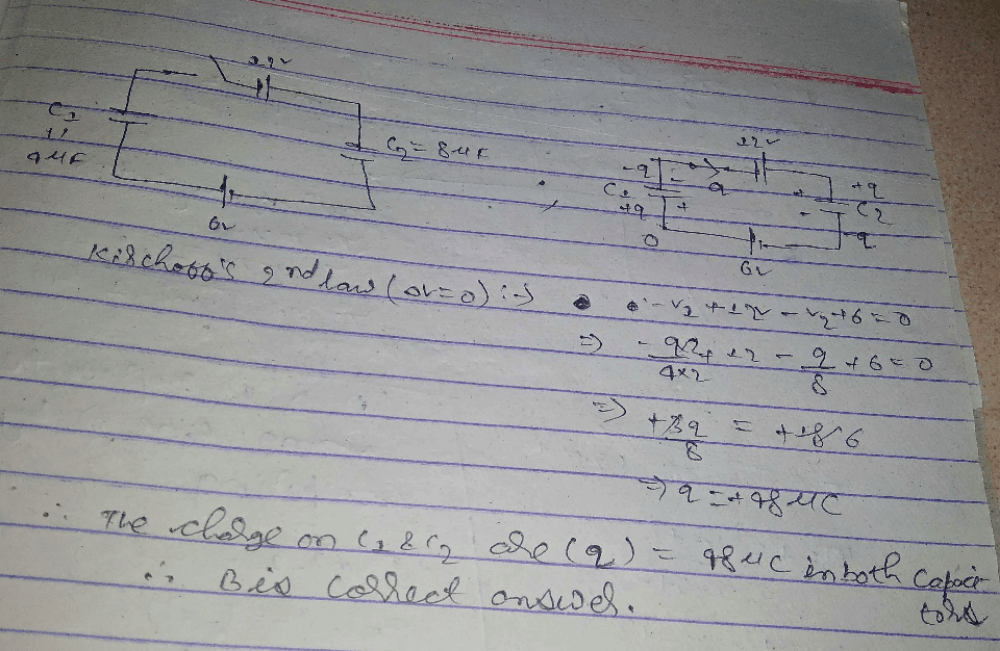 12V
C1
11
4μF
C2 = 8μF
6V
12V
-q
-
q
+
+q
C1
C2
+q
+
-
-q
0
6V
Kirchoff's 2nd law (ΔV=0) :→
0 - V1 + 12 - V2 + 6 = 0
⇒ -q×2/4×2 + 12 - q/8 + 6 = 0
⇒ +3q/8 = +18 6
⇒ q = +48 μC
∴ The charge on C1 & C2 are (q) = 48 μC in both capaci-
tors
∴ B is correct answer.